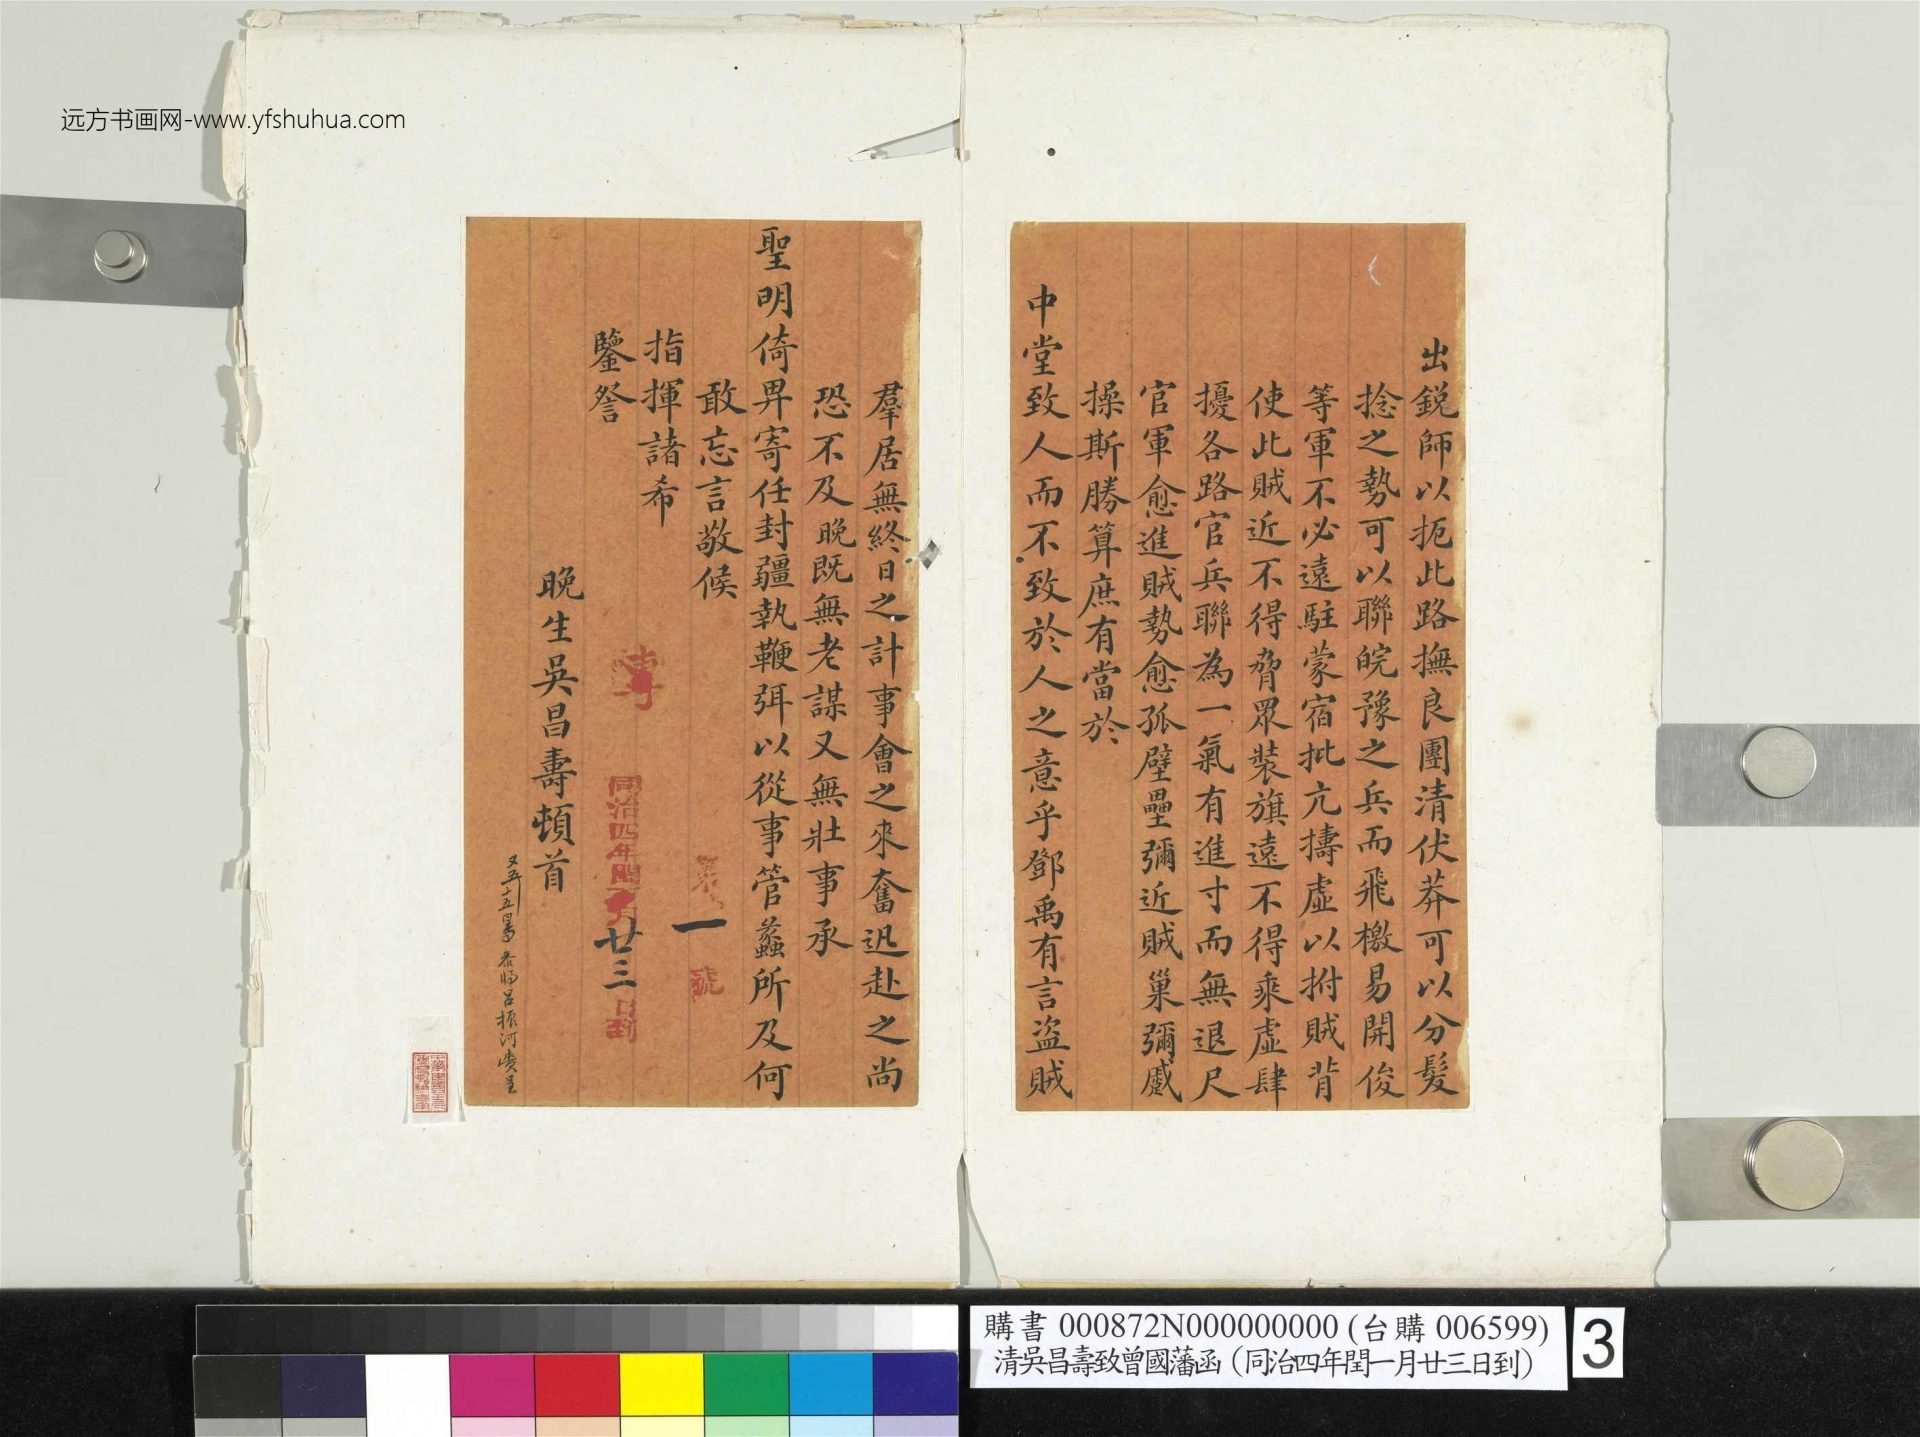 远方书画网-www.yfshuhua.com
出鋭師以扼此路撫良團清伏莽可以分髮
捻之勢可以聯皖豫之兵而飛檄易開俊
等軍不必遠駐蒙宿批亢擣虛以拊賊背
使此賊近不得脅眾裝旗遠不得乘虛肆
擾各路官兵聯為一氣有進寸而無退尺
官軍愈進賊勢愈孤壁壘彌近賊巢彌蹙
操斯勝算庶有當於
中堂致人而不致於人之意乎鄧禹有言盜賊
羣居無終日之計事會之來奮迅赴之尚
恐不及晚既無老謀又無壯事承
聖明倚畀寄任封疆執鞭弭以從事管蠡所及何
敢忘言敬候
指揮諸希
鑒詧
晚生吳昌壽頓首
專
第一號
同治四年閏月廿三日到
購書 000872N000000000 (台購 006599)
清吳昌壽致曾國藩函（同治四年閏一月廿三日到）
3